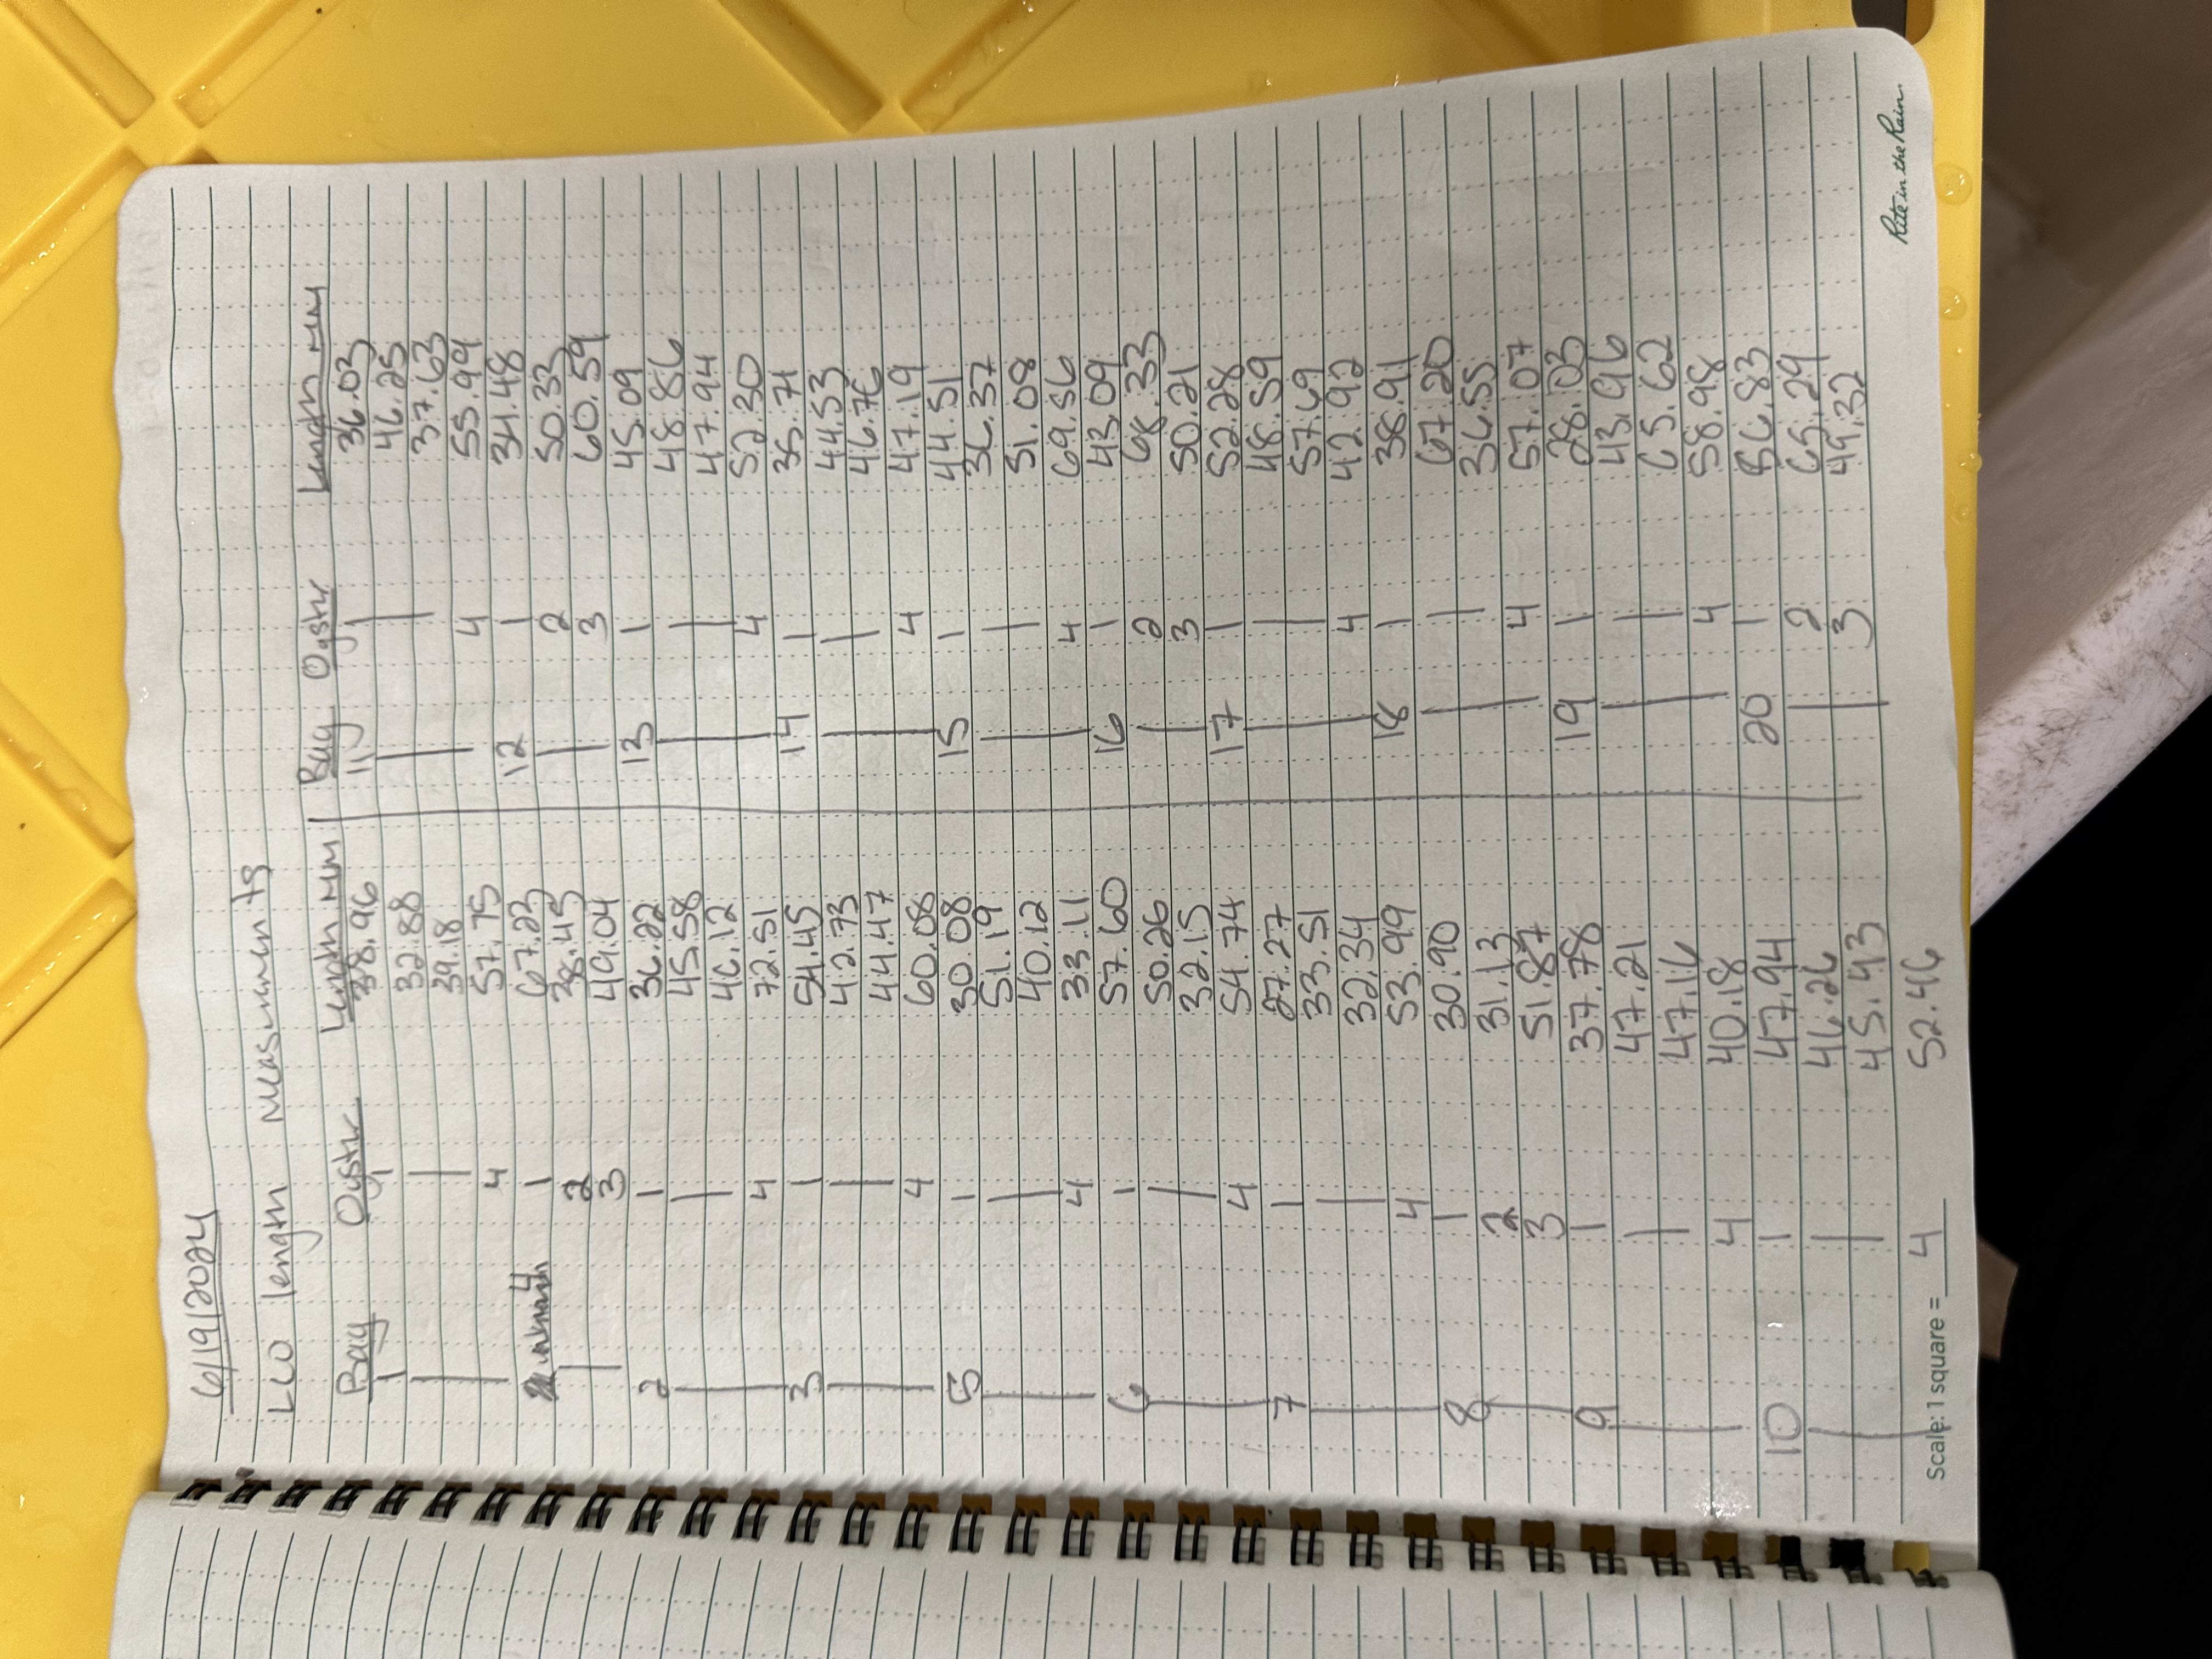 6/19/2024
LCO length measurements
Bag Oyster Length mm
1 1 38.96
32.88
39.18
4 57.75
unknown 4 1 67.23
2 38.45
3 49.04
2 1 36.22
45.58
46.12
4 72.51
3 1 54.45
42.73
44.47
4 60.08
5 1 30.08
51.19
40.12
4 33.11
6 1 57.60
50.26
32.15
4 54.74
7 1 27.27
33.51
32.34
4 53.99
8 1 30.90
2 31.13
3 51.87
9 1 37.78
47.21
47.16
4 40.18
10 1 47.94
46.26
45.43
4 52.46
Scale: 1 square =
Bag Oyster Length mm
11 1 36.03
46.25
37.63
4 55.99
12 1 34.48
2 50.33
3 60.59
13 1 45.09
48.86
47.94
4 52.30
14 1 35.71
44.53
46.76
4 47.19
15 1 44.51
36.37
51.08
4 69.56
16 1 43.09
2 68.33
3 50.21
17 1 52.28
48.59
57.69
4 42.92
18 1 38.91
67.20
36.55
4 57.07
19 1 28.03
43.96
65.62
4 58.98
20 1 56.83
2 65.29
3 49.32
Rite in the Rain